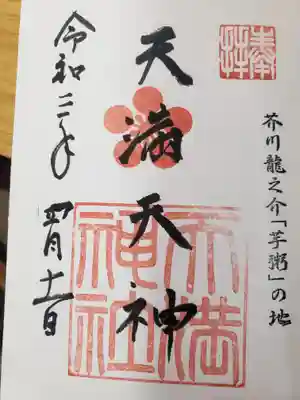 奉拝
芥川龍之介「芋粥」の地
天満天神
天満
神社
令和二年
四月十一日